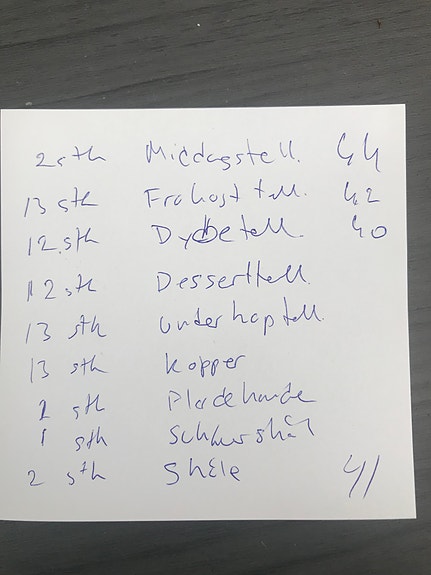 2 stk Middagstell. 44
13 stk Frokosttell. 42
12.stk Dybetell. 40
12 stk Desserttell.
13 stk underkoptell.
13 stk kopper
1 stk Flødekande
1 stk Sukkerskål
2 stk Skåle 41